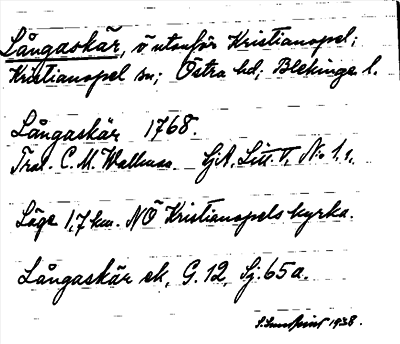 Långaskär, ö utanför Kristianopel;
Kristianopel sn; Östra hd; Blekinge l.
Långaskär 1768.
C. M. SjA. Litt. T. No 1.
Läge 1,7 km. NÖ Kristianopels kyrka.
Långaskär ek, G. 12, Sj. 65 a.
1938.